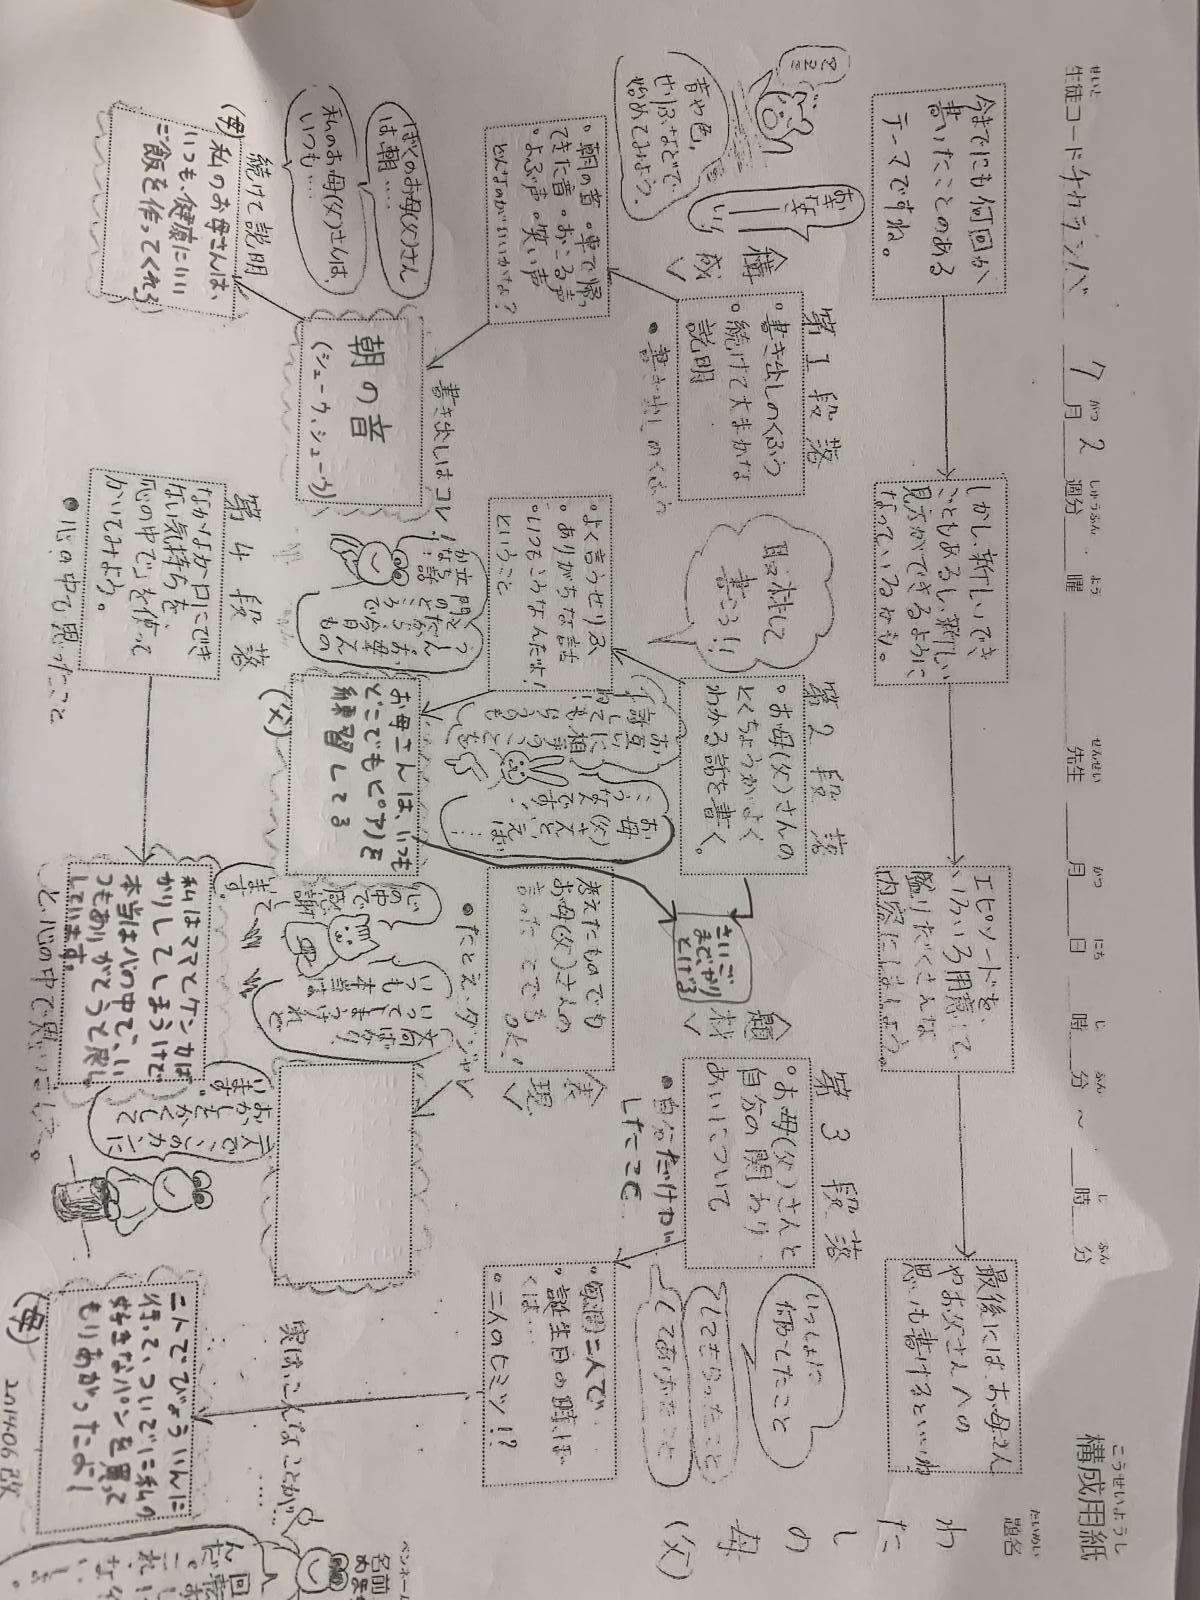 こうせいようし
構成用紙
せいと
生徒コード チカランバ 7月2週分 曜 先生 月 日 時 分 ~ 時 分
がつ しゅうふん よう せんせい がつ にち じ ふん じ ふん
だいめい
題名
わたしの母(父)
今までにも何回か
書いたことのある
テーマですね。
しかし、新しいでき
ごともあるし、新しい
見方ができるように
なっているかも。
エピソードを、
いろいろ用意して、
盛りだくさんな
内容にしましょう。
最後には、お母さん
やお父さんへの
思いも書けるといいね
<構成>
第1段落
・書き出しのくふう
・続けて大まかな
説明
●書き出しのくふう
音や色、
せりふなどで
始めてみよう。
・朝の音・車で帰っ
てきた音・おこる声
・よぶ声・笑い声
どんなのがいいかな?
書き出しはコレ!
朝の音
(シューウ、シューウ)
ぼくのお母(父)さん
は、朝…
私のお母(父)さんは、
いつも…
続けて説明
(母)私のお母さんは、
いつも、健康にいい
ご飯を作ってくれる
取材して
書こう!!
第2段落
・お母(父)さんの
とくちょうがよく
わかる話を書く。
・よく言うせりふ
・ありがちな話
・いつもこうなんだよ!
ということ
お母(父)さんといえば…
こうなんです!
お母さんは、いつも
どこでもピアノを
練習してる
(父)
さいごまでやりとげる
<題材>
第3段落
・お母(父)さんと
自分の関わり
あいについて
●自分だけがしたこと
いっしょに
何かしたこと
してもらったこと
してあげたこと
・毎週二人で
・誕生日の時、ぼ
くは…
・二人のヒミツ!?
実は、こんなことが…
二人でびょういんに
行って、ついでに私の
好きなパンを買って
もりあがったよ!
(母)
<表現>
●たとえ・ダジャレ
考えたものでも
お母(父)さんの
言ったことでも
OK!
第4段落
なかなか口にでき
ない気持ちを、
「心の中で」を使って
かいてみよう。
●心の中で思ったこと
私はママとケンカば
かりしてしまうけど
本当は心の中で、い
つもありがとうと感し
しています。
と、心の中で思いました。
心の中で
感謝して
います。
いつも文句ばかり
いってしまうけれど
本当は
201406改
ペンネーム
名前